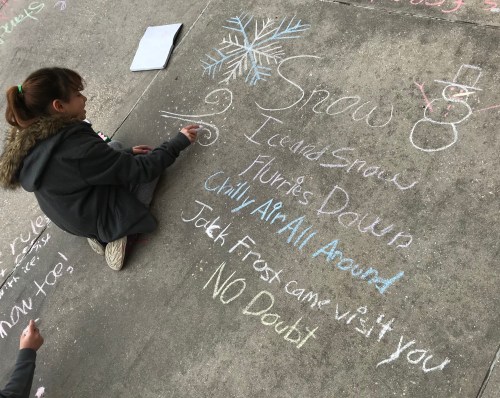 Snow
Ice and Snow
Flurries Down
Chilly Air All Around
Jack Frost came visit you
NO Doubt